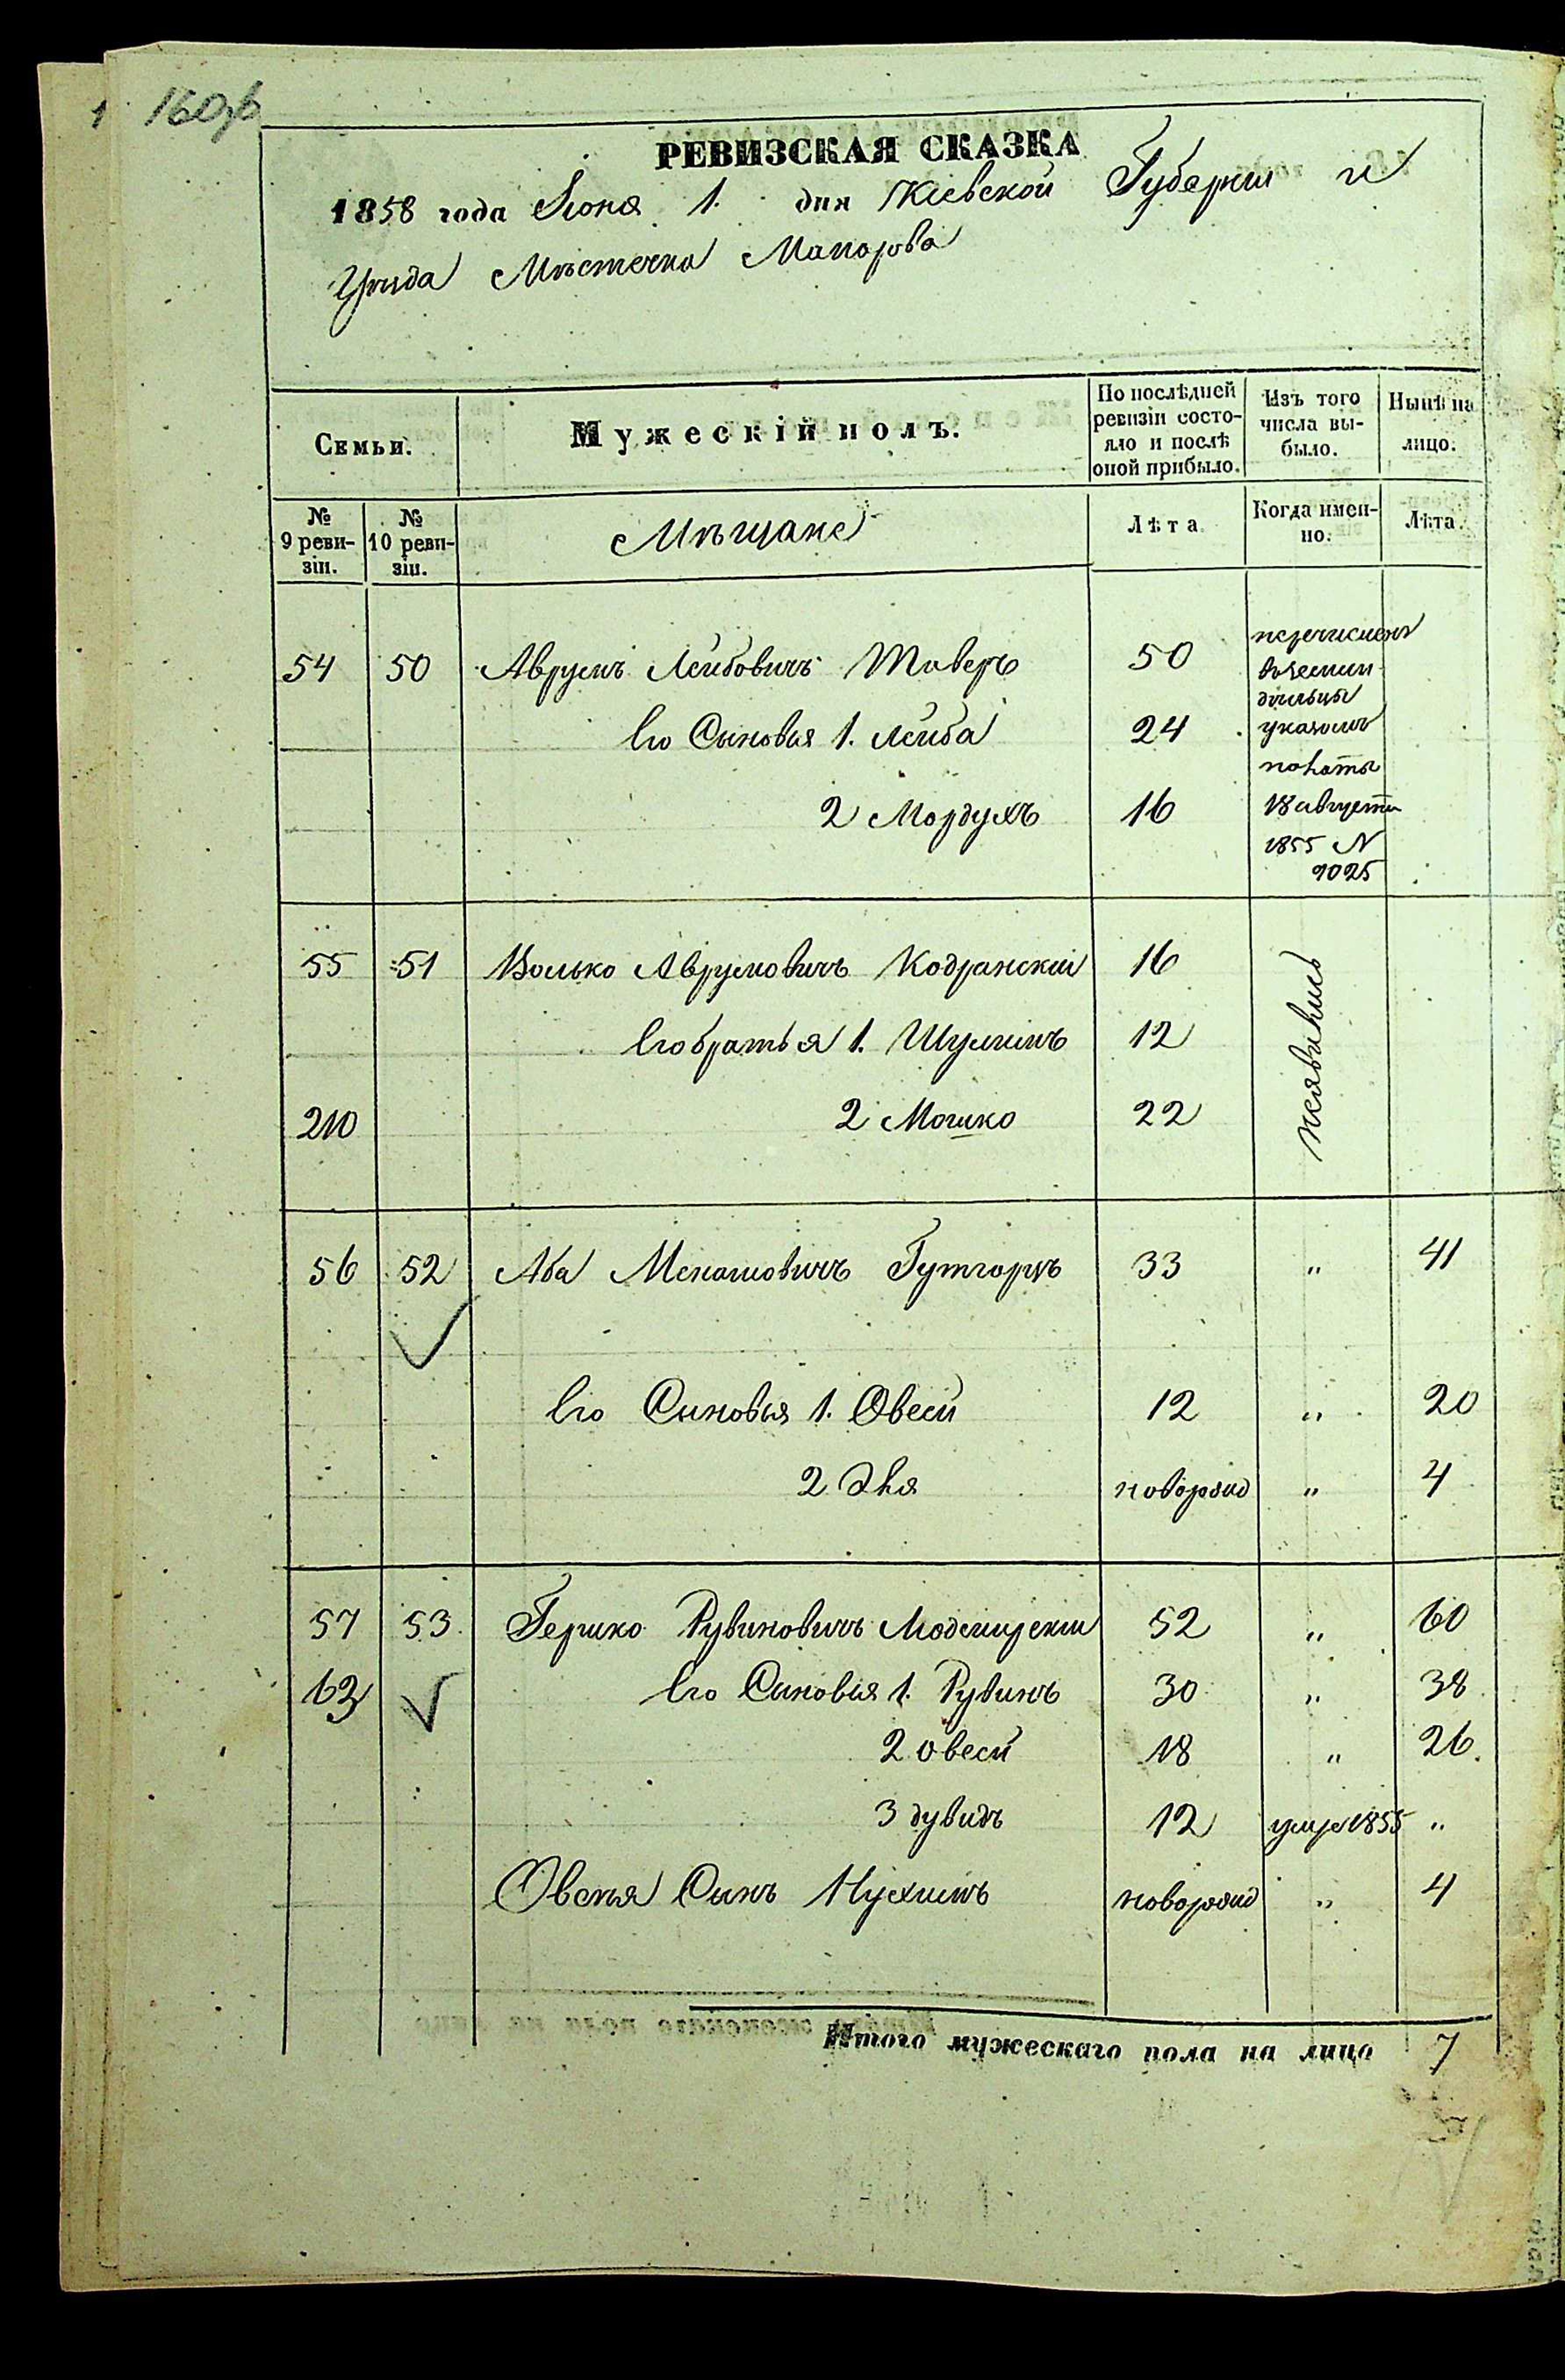 160об
РЕВИЗСКАЯ СКАЗКА
1858 года Іюня 1. дня Кіевской Губерніи и
Уѣзда Мѣстечка Макарова
Семьи.
Мужескій полъ.
По послѣдней ревизіи состояло и послѣ оной прибыло.
Изъ того числа выбыло.
Нынѣ на лицо.
№ 9 ревизіи.
№ 10 ревизіи.
Мѣщане
Лѣта
Когда именно.
Лѣта.
54 50 Аврумъ Лейбовичъ Таверъ 50 перечислены
въземли
дѣльцы
Его Сыновья 1. Лейба 24 указомъ
палаты
2 Мордухъ 16 18 августа
1855 N
9025
55 51 Волько Аврумовичъ Кодранскій 16 неявились
Его братья 1. Шулимъ 12
210 2 Мошко 22
56 52 Аба Менашовичъ Гутгарцъ 33 " 41
Его Сыновья 1. Овсей 12 " 20
2 новорожд " 4
57 53 Гершко Рувиновичъ 52 " 60
63 Его Сыновья 1. Рувинъ 30 " 38
2 овсей 18 " 26
3 дувидъ 12 умре 1855 "
Овсея Сынъ Нухимъ новорожд " 4
Итого мужескаго пола на лицо 7